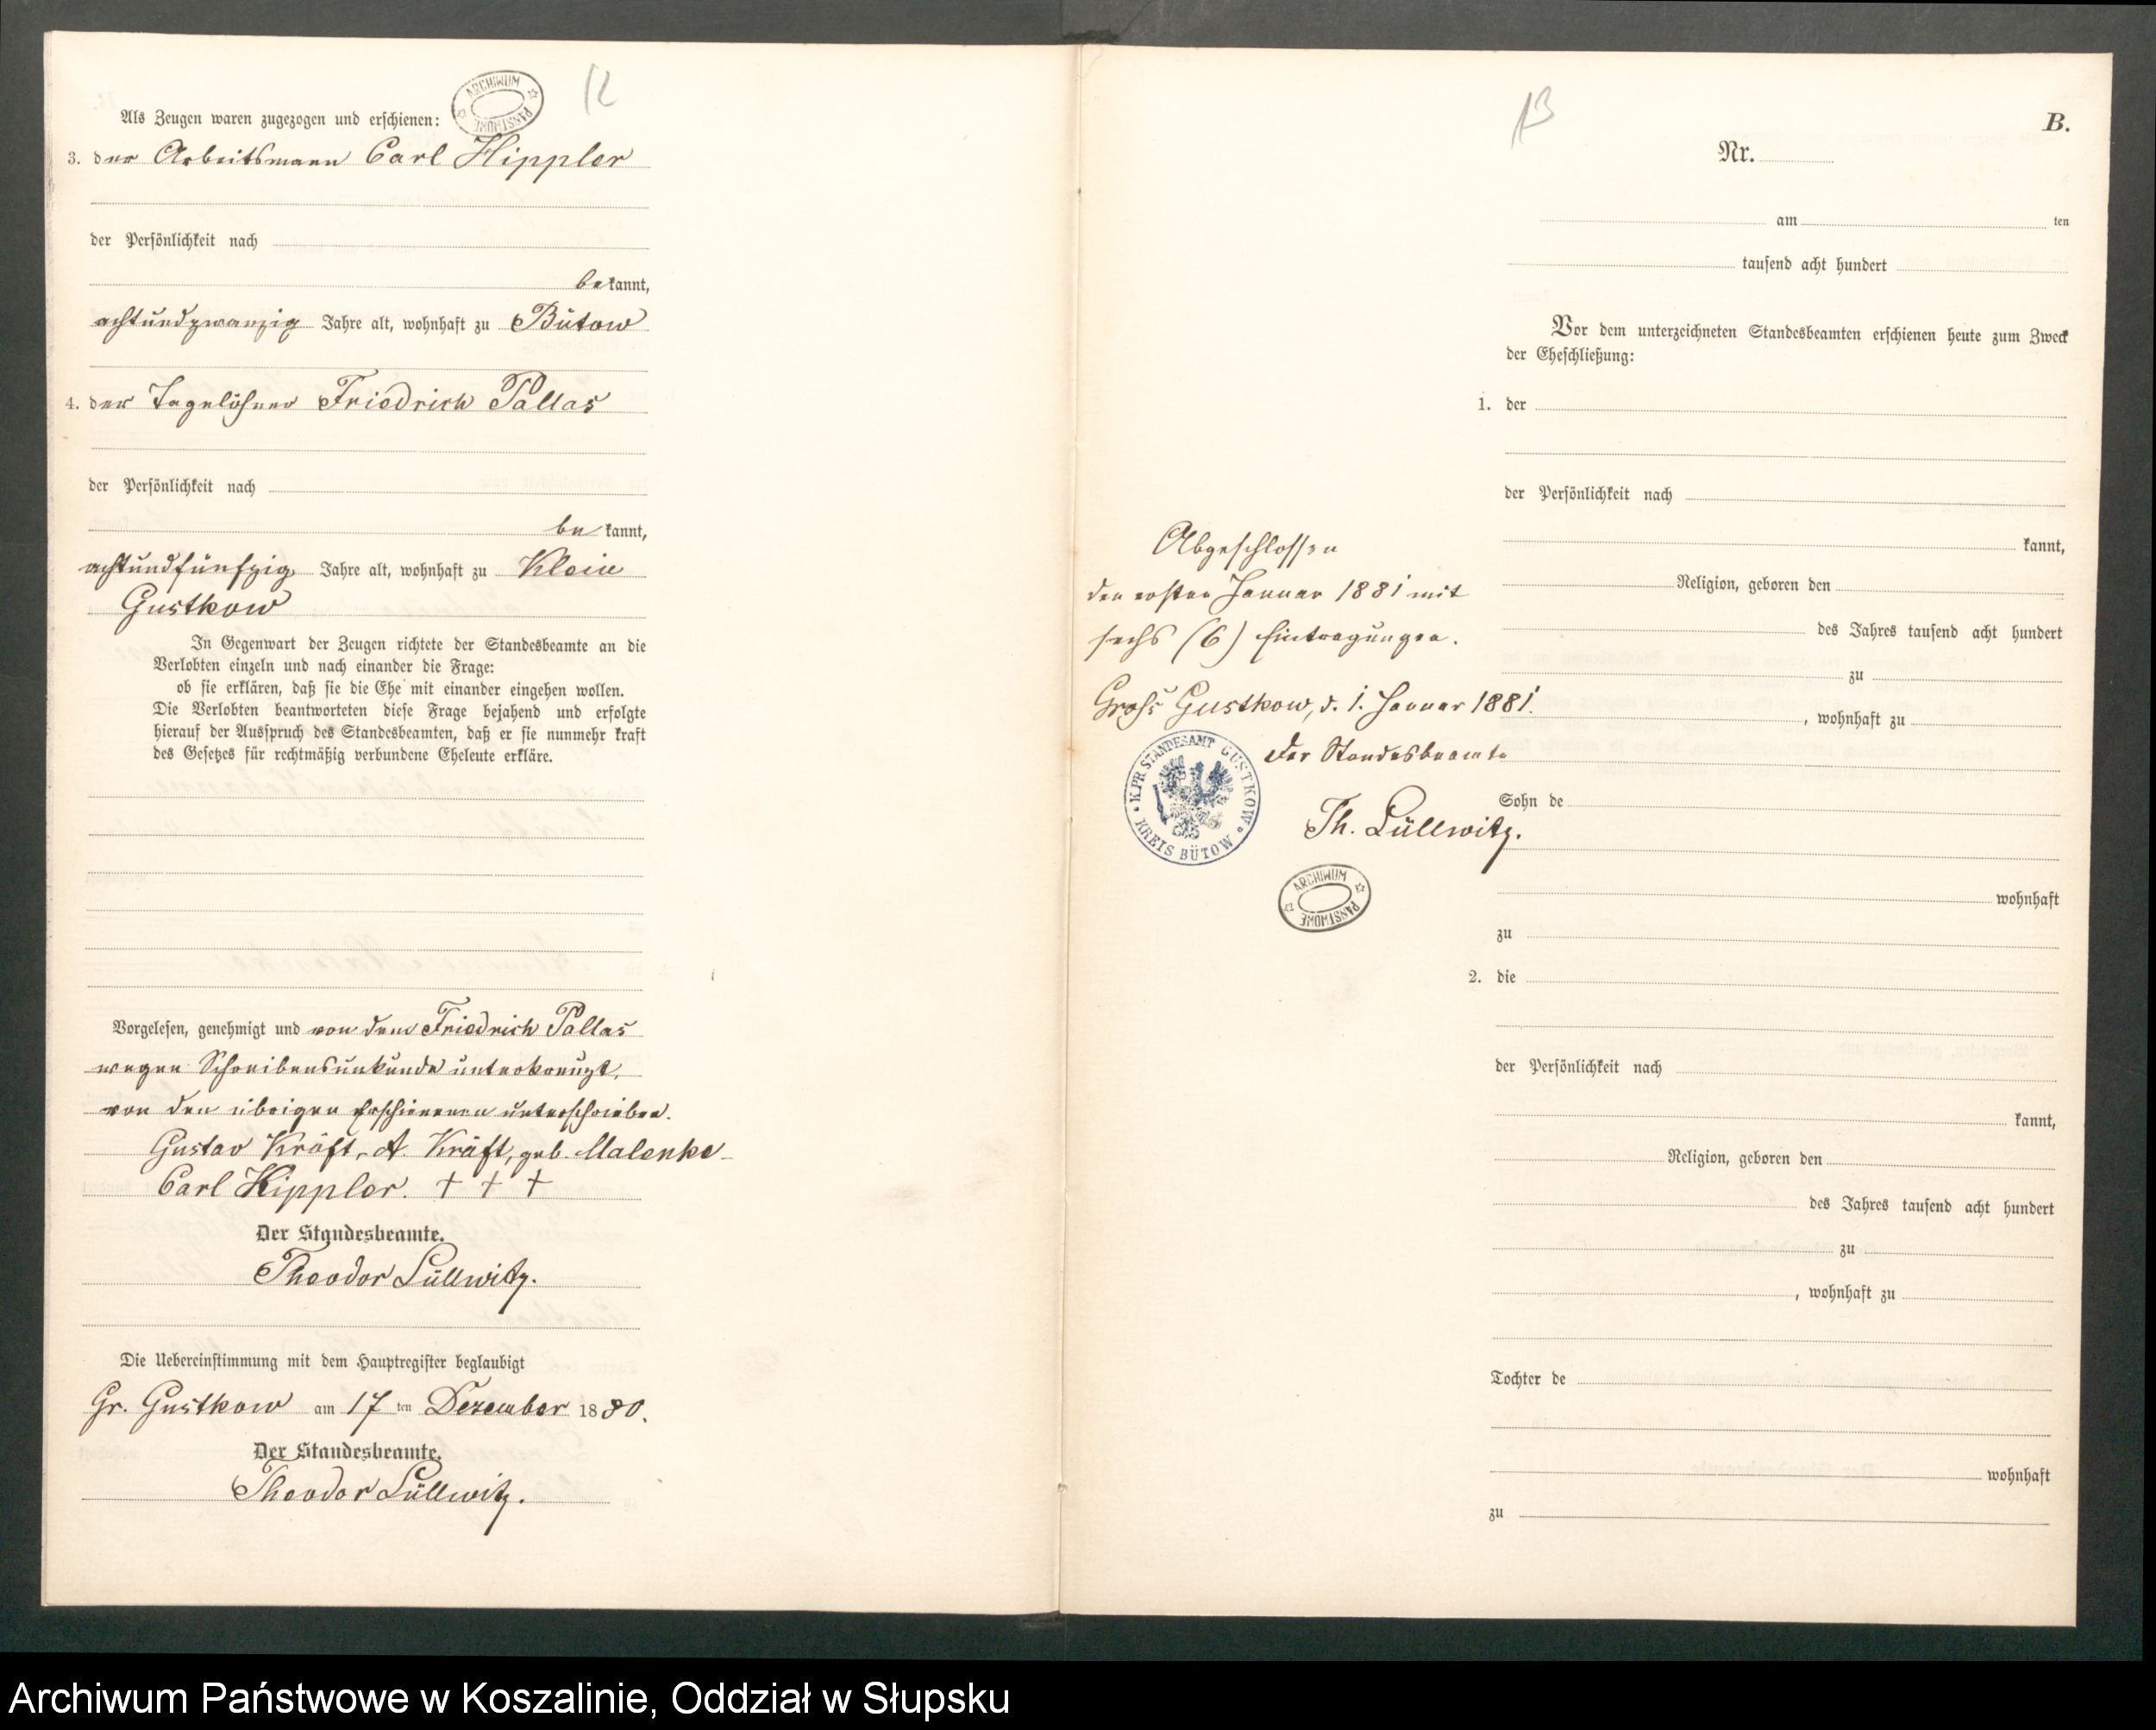 12
ARCHIWUM PAŃSTWOWE
Als Zeugen waren zugezogen und erschienen:
3. der Arbeitsmann Carl Hippler
der Persönlichkeit nach
bekannt,
achtundzwanzig Jahre alt, wohnhaft zu Bütow
4. der Tagelöhner Friedrich Pallas
der Persönlichkeit nach
be kannt,
achtundfünfzig Jahre alt, wohnhaft zu Klein
Gustkow
In Gegenwart der Zeugen richtete der Standesbeamte an die
Verlobten einzeln und nach einander die Frage:
ob sie erklären, daß sie die Ehe mit einander eingehen wollen.
Die Verlobten beantworteten diese Frage bejahend und erfolgte
hierauf der Ausspruch des Standesbeamten, daß er sie nunmehr kraft
des Gesetzes für rechtmäßig verbundene Eheleute erkläre.
Vorgelesen, genehmigt und von dem Friedrich Pallas
wegen Schreibensunkunde unterkreuzt,
von den übrigen Erschienenen unterschrieben.
Gustav Kräft, A. Kräft, geb. Malenke
Carl Hippler. † † †
Der Standesbeamte.
Theodor Lüllwitz.
Die Uebereinstimmung mit dem Hauptregister beglaubigt
Gr. Gustkow am 17 ten Dezember 1880.
Der Standesbeamte.
Theodor Lüllwitz.
13
B.
Nr.
am ten
tausend acht hundert
Vor dem unterzeichneten Standesbeamten erschienen heute zum Zweck
der Eheschließung:
1. der
der Persönlichkeit nach
kannt,
Religion, geboren den
des Jahres tausend acht hundert
zu
, wohnhaft zu
Sohn de
wohnhaft
zu
2. die
der Persönlichkeit nach
kannt,
Religion, geboren den
des Jahres tausend acht hundert
zu
, wohnhaft zu
Tochter de
wohnhaft
zu
Abgeschlossen
den ersten Januar 1881 mit
sechs (6) Eintragungen.
Groß Gustkow, d. 1. Januar 1881.
Der Standesbeamte
Th. Lüllwitz.
K. PR. STANDESAMT GUSTKOW
KREIS BÜTOW
ARCHIWUM PAŃSTWOWE
Archiwum Państwowe w Koszalinie, Oddział w Słupsku